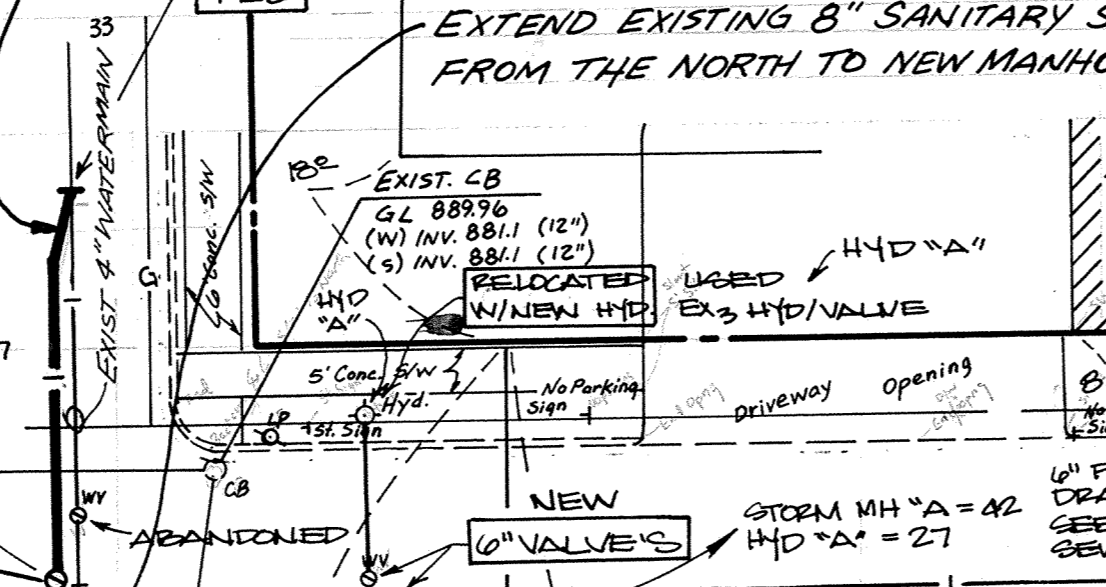 EXTEND EXISTING 8" SANITARY
FROM THE NORTH TO NEW
33
EXIST. 4" WATERMAIN
6' Conc. S/W
G
18º
EXIST. CB
GL 889.96
(W) INV. 881.1 (12")
(S) INV. 881.1 (12")
RELOCATED
W/NEW HYD.
USED
HYD/VALVE
HYD "A"
HYD
"A"
5' Conc. S/W
Hyd.
No Parking
Sign
Driveway Opening
8
LP
St. Sign
CB
WV
ABANDONED
NEW
6" VALVE'S
WV
STORM MH "A = 42
HYD "A" = 27
6"